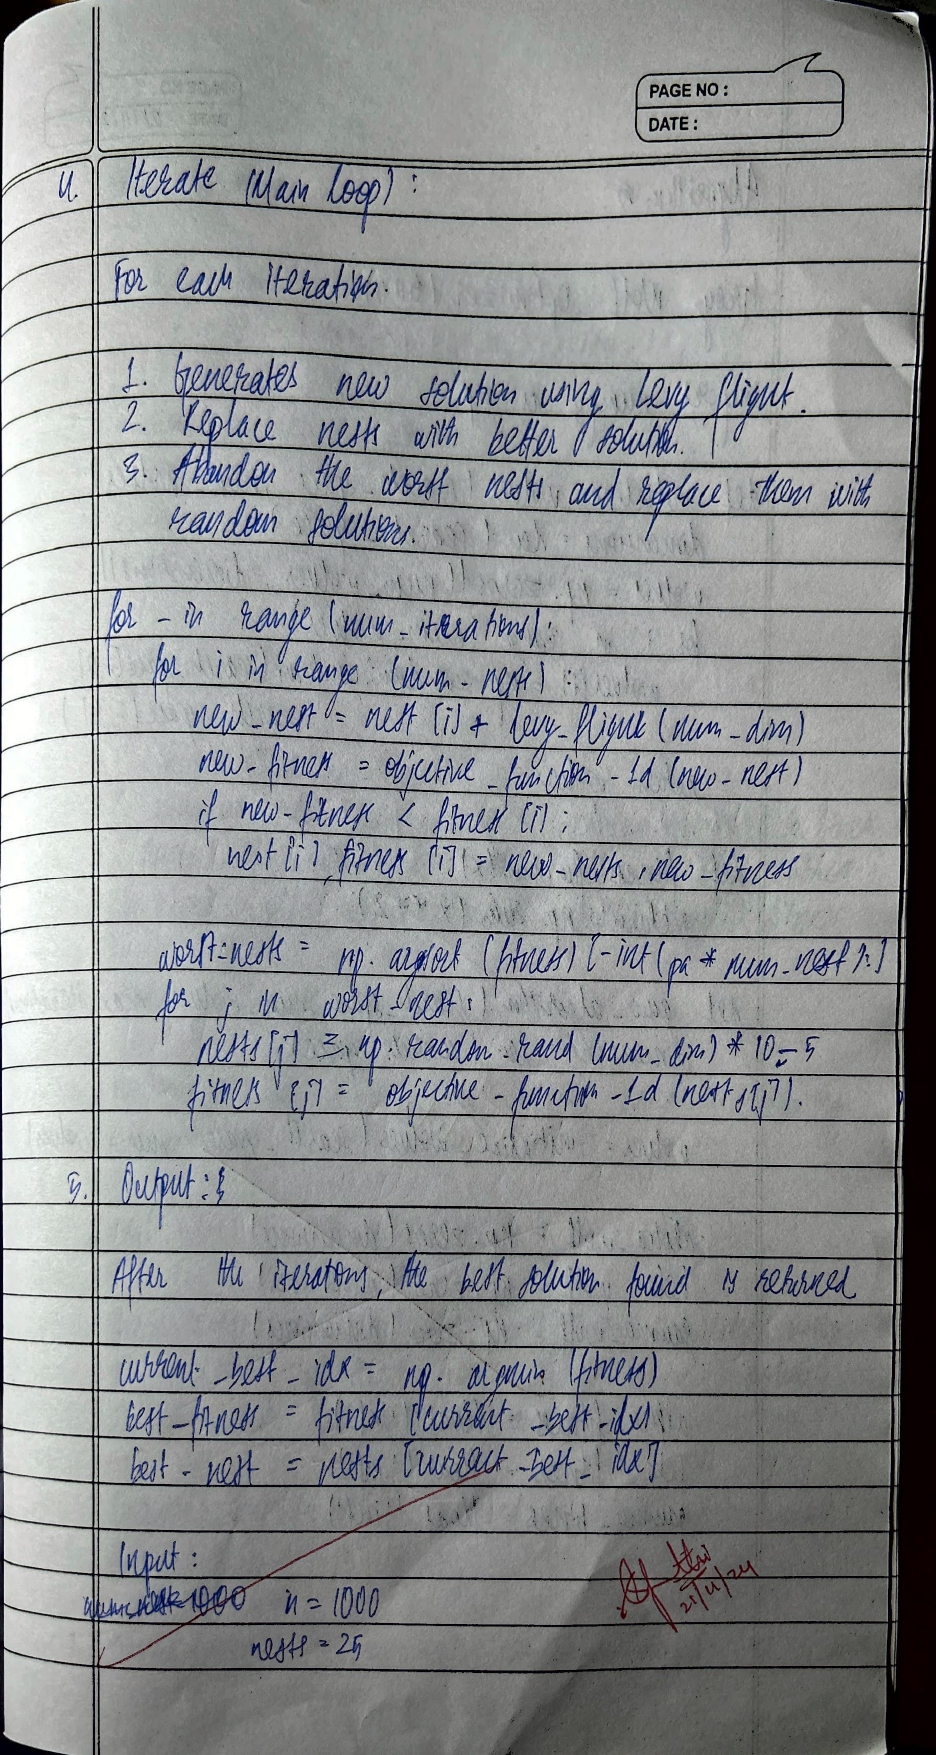 PAGE NO :
DATE :
4. Iterate (Main Loop) :
For each iteration.
1. Generates new solution using Levy flight.
2. Replace nests with better solution.
3. Abandon the worst nests and replace them with
random solutions.
for _ in range (num_iterations):
for i in range (num_nests) :
new_nest = nest [i] + levy_flight (num_dim)
new_fitness = objective_function_1d (new_nest)
if new_fitness < fitness [i] :
nest [i], fitness [i] = new_nests, new_fitness
worst_nests = np. argsort (fitness) [-int (pa * num_nest):]
for j in worst_nest:
nests [j] = np. random. rand (num_dim) * 10 - 5
fitness [j] = objective_function_1d (nests [j]).
5. Output :
After the iterations, the best solution found is returned
current_best_idx = np. argmin (fitness)
best_fitness = fitness [current_best_idx]
best_nest = nests [current_best_idx]
Input :
n = 1000
nests = 25
21/11/24